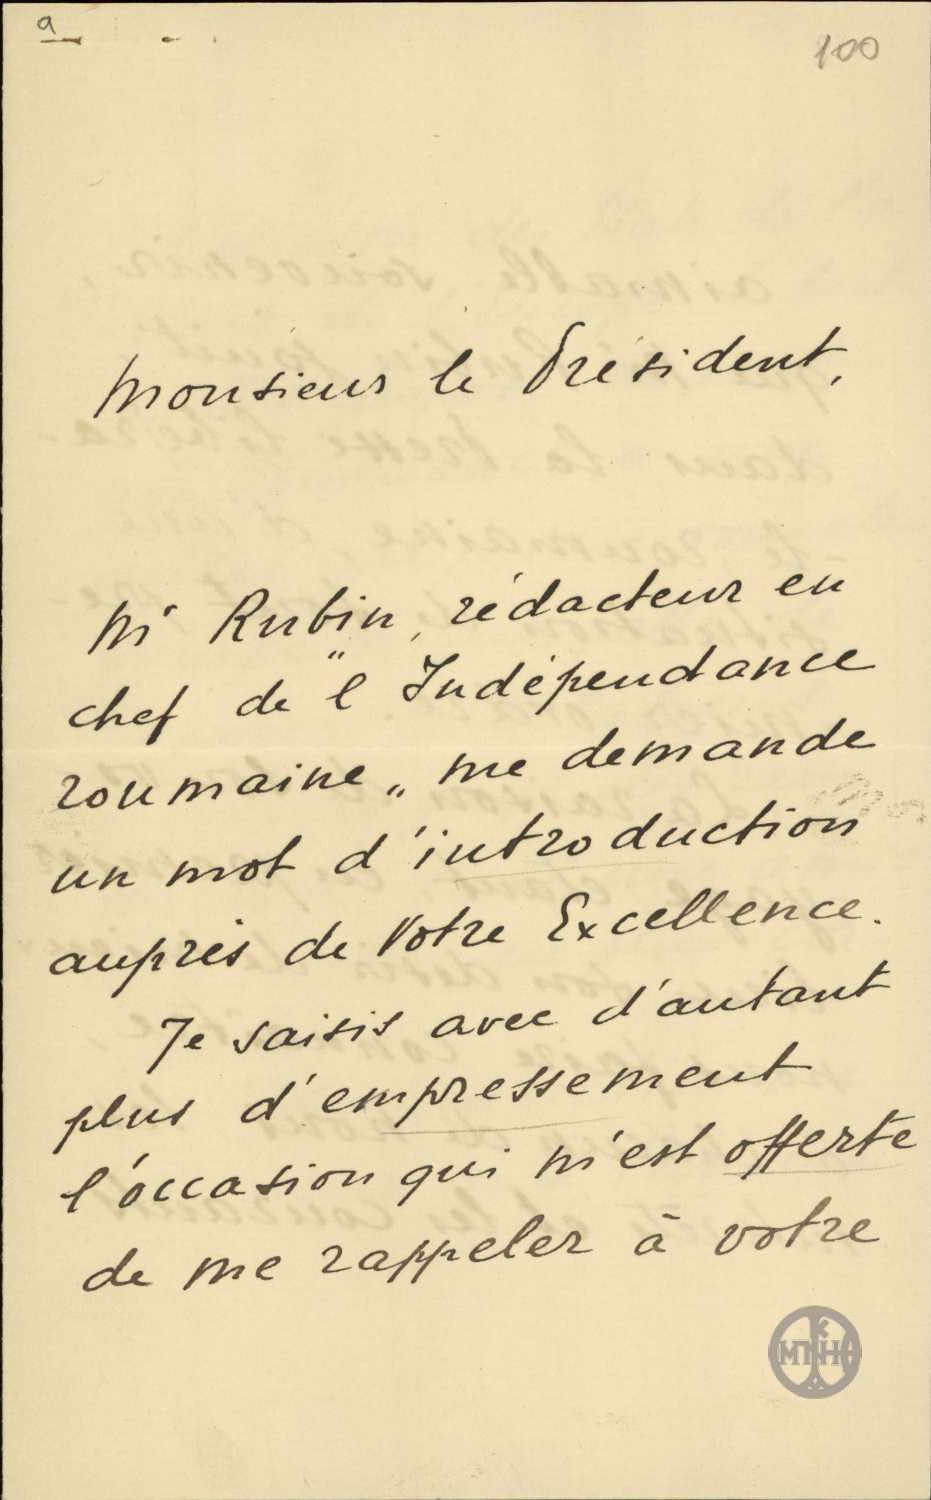 a
100
Monsieur le Président,
Mr Rubin, rédacteur en
chef de "l'Indépendance
roumaine„ me demande
un mot d'introduction
auprès de Votre Excellence.
Je saisis avec d'autant
plus d'empressement
l'occasion qui m'est offerte
de me rappeler à votre